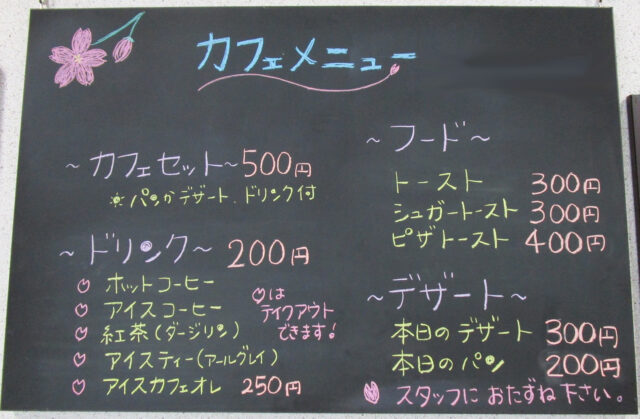 カフェメニュー
～カフェセット～500円
※パンかデザート、ドリンク付
～ドリンク～ 200円
ホットコーヒー
アイスコーヒー
紅茶(ダージリン)
アイスティー(アールグレイ)
アイスカフェオレ 250円
は
テイクアウト
できます!
～フード～
トースト 300円
シュガートースト 300円
ピザトースト 400円
～デザート～
本日のデザート 300円
本日のパン 200円
スタッフにおたずね下さい。